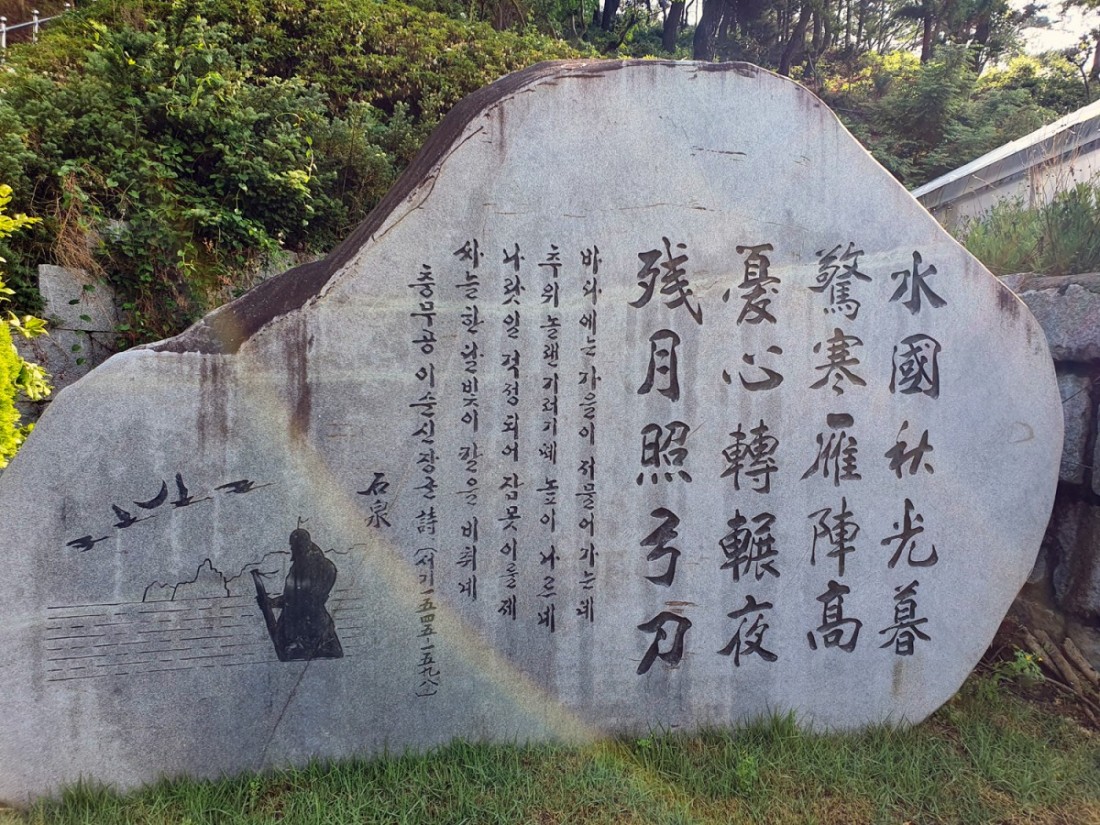 水國秋光暮
驚寒雁陣高
憂心轉輾夜
残月照弓刀
바다에는 가을이 저물어 가는데
추위 놀랜 기러기떼 높이 나르네
나랏일 걱정되어 잠 못 이룰 제
싸늘한 달빛이 칼을 비취네
충무공 이순신 장군 詩 (서기 一五四五-一五九八)
石泉